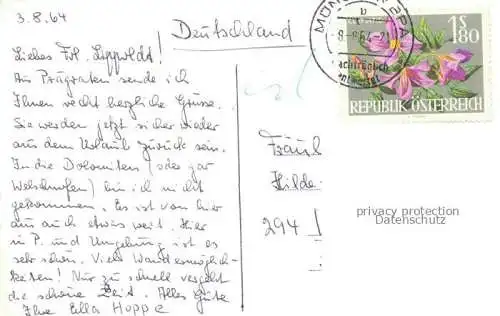 3.8.64
Deutschland
Liebes Frl. Lippoldt!
Aus Prägraten sende ich
Ihnen recht herzliche Grüsse.
Sie werden jetzt sicher wieder
aus dem Urlaub zurück sein.
In die Dolomiten (oder gar
Welschnofen) bin ich nicht
gekommen. Es ist von hier
aus auch etwas weit. Hier
in P. und Umgebung ist es
sehr schön. Viele Wandermöglich-
keiten! Nur zu schnell vergeht
die schöne Zeit. Alles Gute
Ihre Ella Hoppe
1S80
REPUBLIK ÖSTERREICH
achträglich
entwertet
Fräul
Hilde
294
privacy protection
Datenschutz